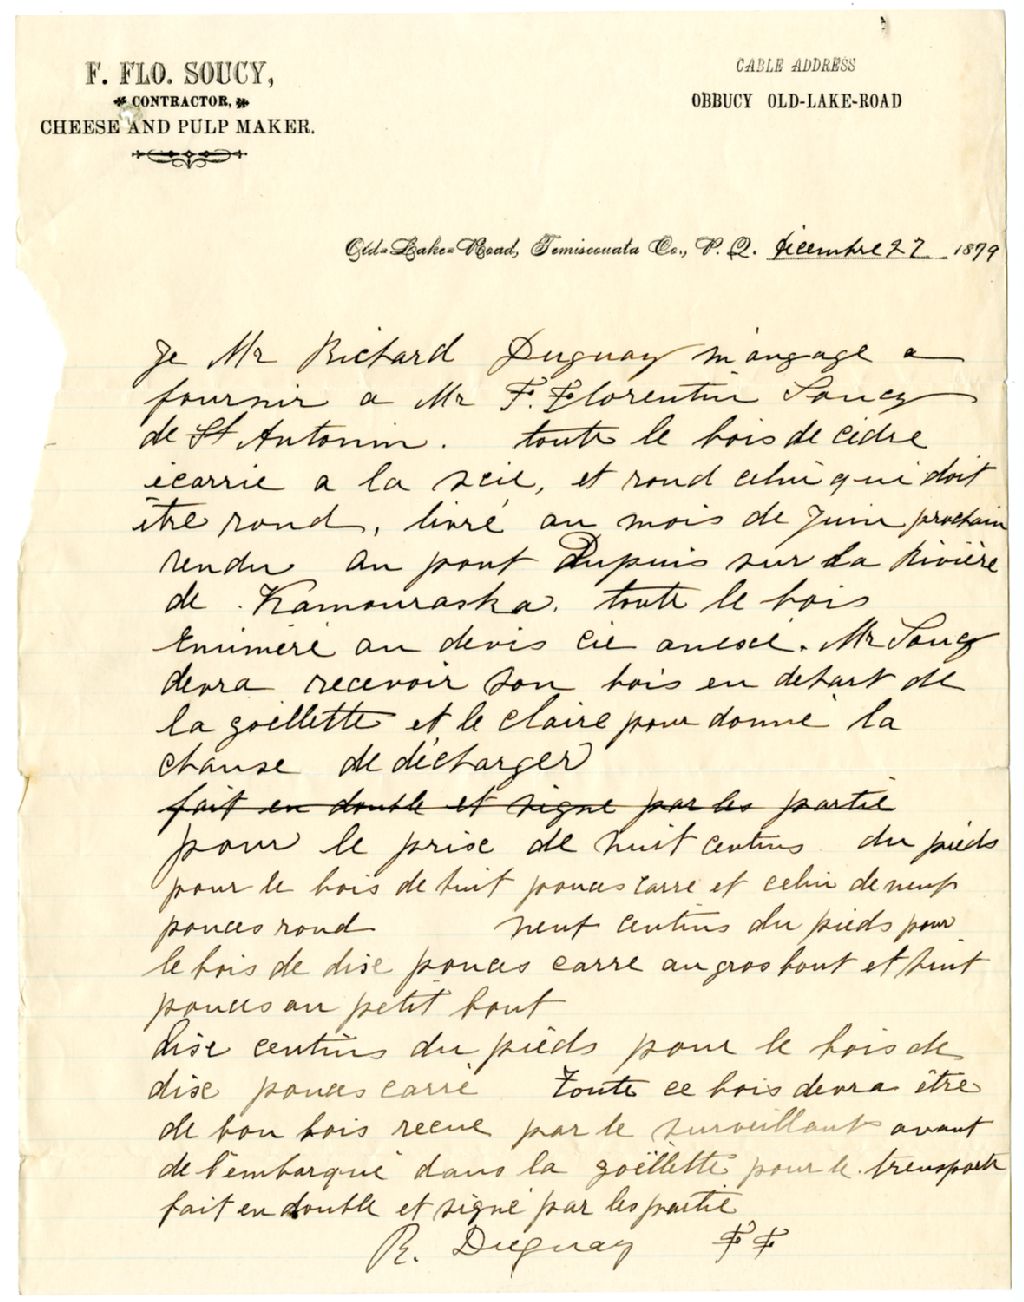 F. FLO. SOUCY,
CONTRACTOR,
CHEESE AND PULP MAKER.
CABLE ADDRESS
OBBUCY OLD-LAKE-ROAD
Old-Lake-Road, Temiscouata Co., P. Q. Dicembre 27 1899
Je Mr Richard Duguay m'angage a
fournir a Mr F. Florentin Soucy
de St Antonin. toute le bois de cidre
ecarrie a la scie, et rond celui qui doit
être rond, livré au mois de Juin prochain
rendu au pont Dupuis sur la Rivière
de Kamouraska. toute le bois
Enuméré au devis cie anexé. Mr Soucy
devra recevoir son bois en debart de
la goëllette et le claire pour donné la
chanse de décharger
fait en double et signe par les partie
pour le prise de huit centins du pieds
pour le bois de huit pouces carre et celui de neuf
pouces rond neuf centins du pieds pour
le bois de dise pouces carre au gros bout et huit
pouces au petit bout
Dise centins du pieds pour le bois de
dise pouces carré Toute ce bois devra être
de bon bois recue par le surveillant avant
de l'embarqué dans la goëllette pour le transporte
fait en double et signé par les partie
R. Duguay FF